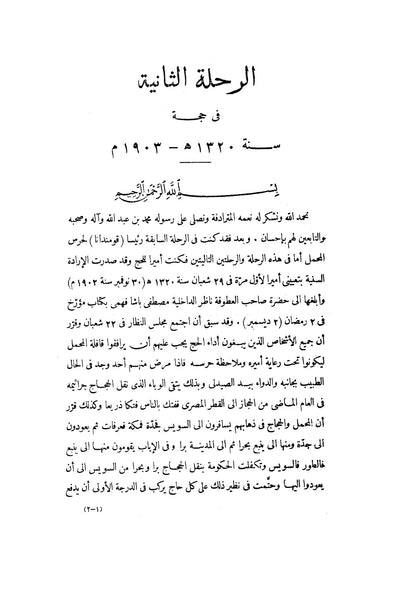 الرحلة الثانية
فى حجة
سنة ١٣٢٠ ه – ١٩٠٣ م
بسم الله الرحمن الرحيم
نحمد الله ونشكر له نعمه المترادفة ونصلى على رسوله محمد بن عبد الله وآله وصحبه
والتابعين لهم بإحسان . وبعد فقد كنت فى الرحلة السابقة رئيسا (قومندانا) لحرس
المحمل أما فى هذه الرحلة والرحلتين التاليتين فكنت أميرا للحج وقد صدرت الإرادة
السنية بتعيينى أميرا لأوّل مرّة فى ٢٩ شعبان سنة ١٣٢٠ ه (٣٠ نوفمبر سنة ١٩٠٢ م)
وأبلغها الى حضرة صاحب العطوفة ناظر الداخلية مصطفى باشا فهمى بكتاب مؤرّخ
فى ٢ رمضان (٢ ديسمبر) . وقد سبق أن اجتمع مجلس النظار فى ٢٢ شعبان وقرّر
أن جميع الأشخاص الذين يبغون أداء الحج يجب عليهم أن يرافقوا قافلة المحمل
ليكونوا تحت رعاية أميره وملاحظة حرسه فاذا مرض منهم أحد وجد فى الحال
الطبيب بجانبه والدواء بيد الصيدلى وبذلك يتق الوباء الذى نقل الحجاج جراثيمه
فى العام الماضى من الحجاز الى القطر المصرى ففتك بالناس فتكا ذريعا وكذلك قرّر
أن المحمل والحجاج فى ذهابهم يسافرون الى السويس فجدّة فمكة فعرفات ثم يعودون
الى جدّة ومنها الى ينبع بحرا ثم الى المدينة برا وفى الإياب يقومون منها الى ينبع
فالطور فالسويس وتكفلت الحكومة بنقل الحجاج برا وبحرا من السويس الى أن
يعودوا اليها وحتّمت فى نظير ذلك على كل حاج يركب فى الدرجة الأولى أن يدفع
(٢-١)